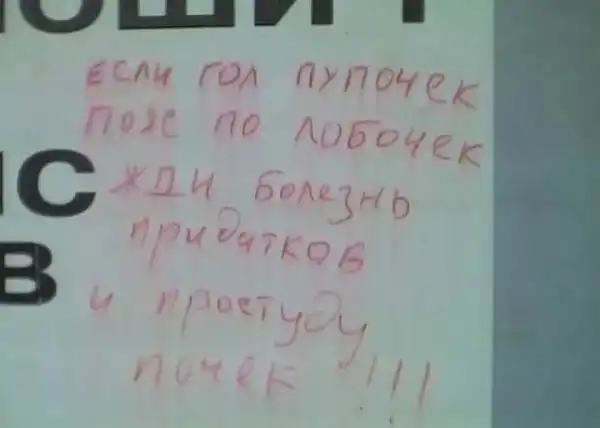 ЕСЛИ ГОЛ ПУПОЧЕК
ПОЯС ПО ЛОБОЧЕК
ЖДИ БОЛЕЗНЬ
ПРИДАТКОВ
И ПРОСТУДУ
ПОЧЕК !!!
С
В